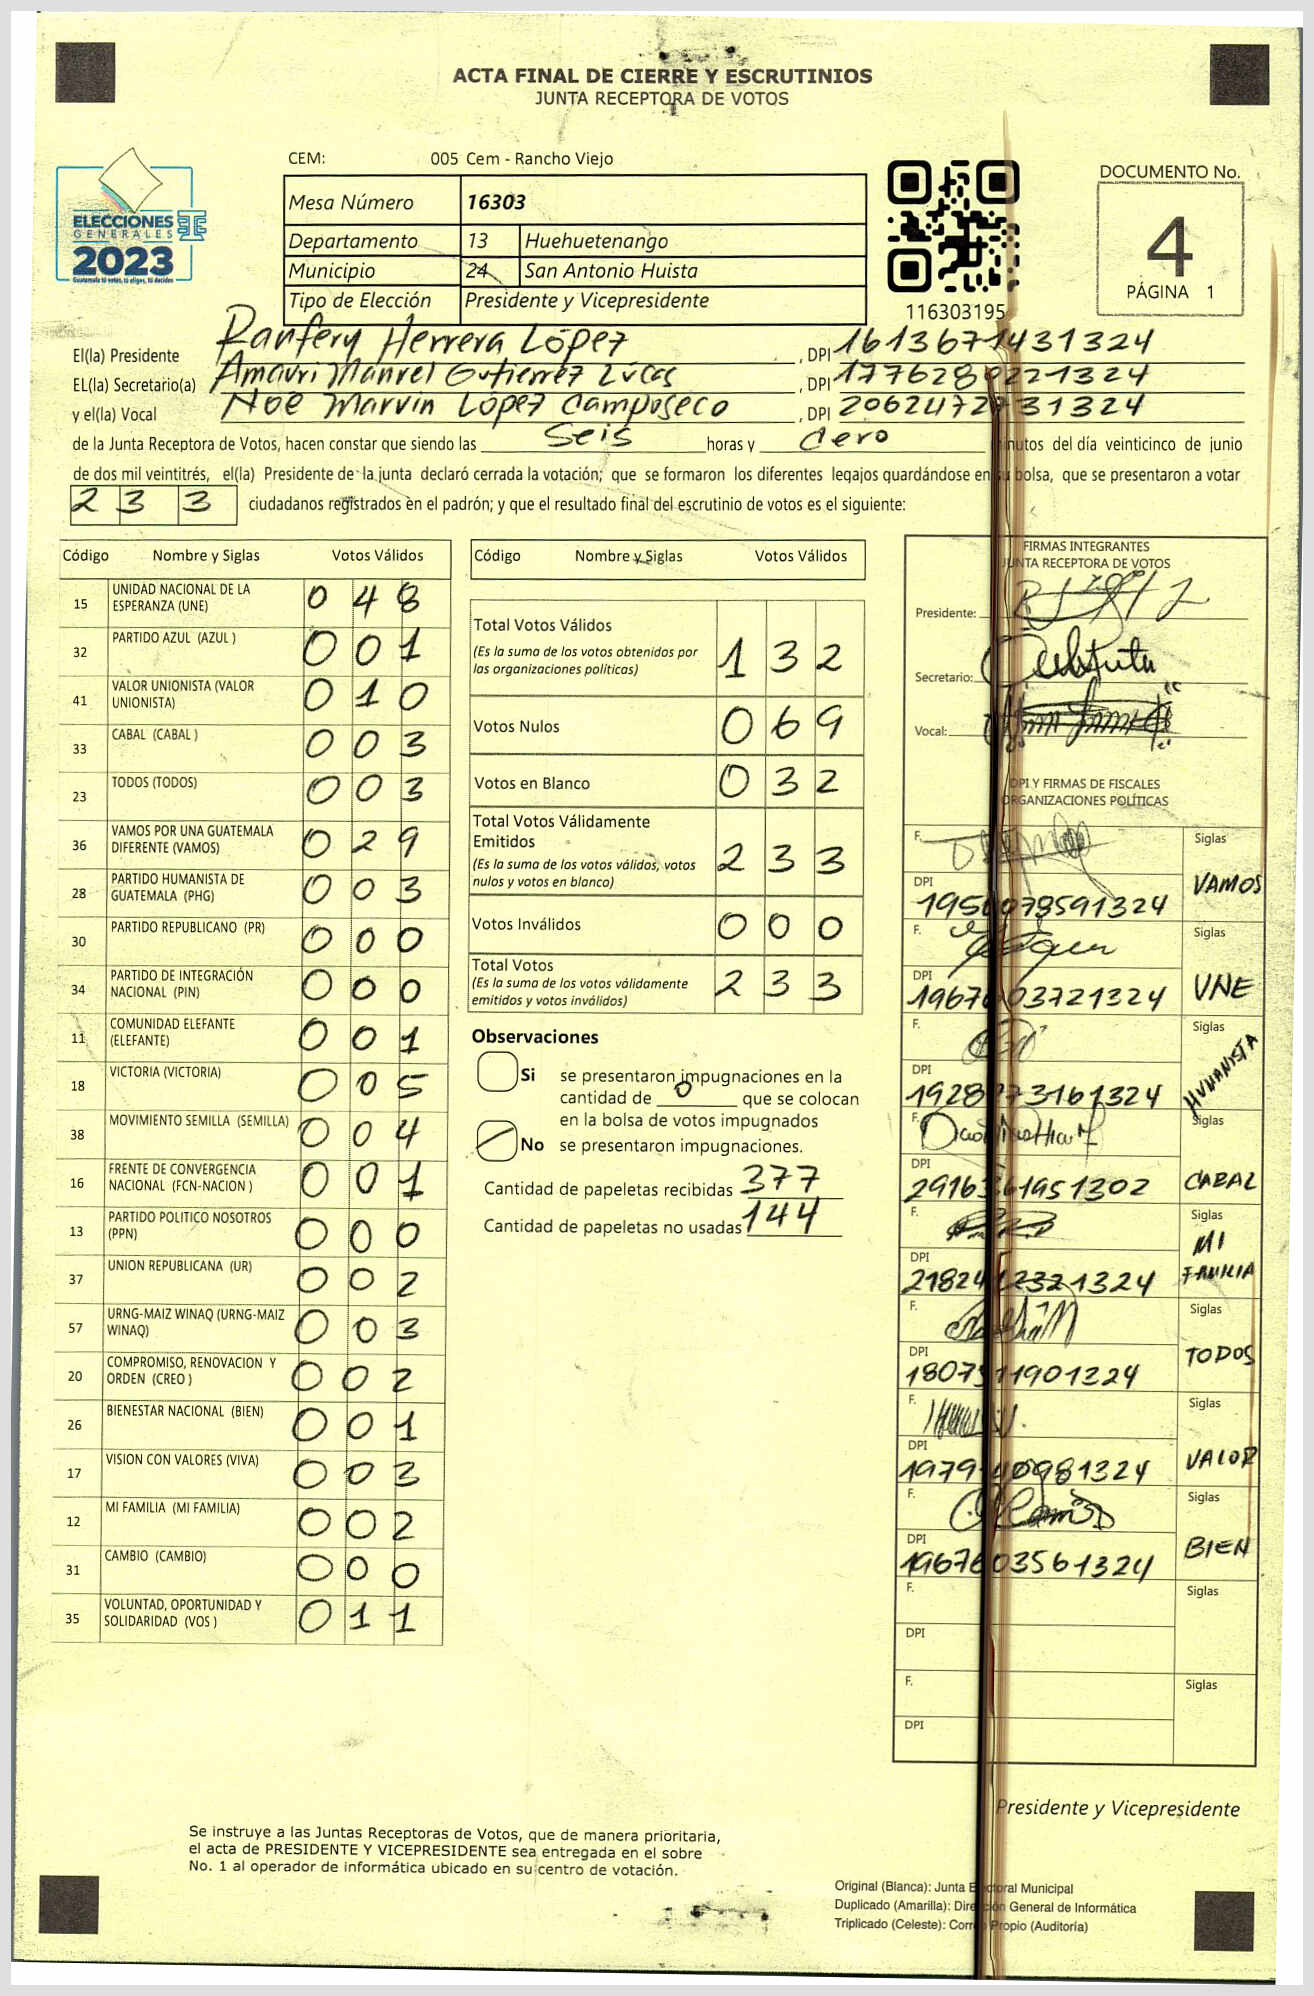 ACTA FINAL DE CIERRE Y ESCRUTINIOS
JUNTA RECEPTORA DE VOTOS
ELECCIONES
GENERALES
2023
Guatemala tú votas, tú eliges, tú decides
CEM: 005 Cem - Rancho Viejo
Mesa Número 16303
Departamento 13 Huehuetenango
Municipio 24 San Antonio Huista
Tipo de Elección Presidente y Vicepresidente
116303195
DOCUMENTO No.
4
PÁGINA 1
El(la) Presidente Ranfery Herrera López, DPI 1613671431324
EL(la) Secretario(a) Amauri Manuel Gutierrez Lucas, DPI 1776280221324
y el(la) Vocal Noe Marvin López Camposeco, DPI 2062472731324
de la Junta Receptora de Votos, hacen constar que siendo las seis horas y cero minutos del día veinticinco de junio
de dos mil veintitrés, el(la) Presidente de la junta declaró cerrada la votación; que se formaron los diferentes legajos guardándose en su bolsa, que se presentaron a votar
233 ciudadanos registrados en el padrón; y que el resultado final del escrutinio de votos es el siguiente:
Código Nombre y Siglas Votos Válidos
15 UNIDAD NACIONAL DE LA ESPERANZA (UNE) 048
32 PARTIDO AZUL (AZUL ) 001
41 VALOR UNIONISTA (VALOR UNIONISTA) 010
33 CABAL (CABAL ) 003
23 TODOS (TODOS) 003
36 VAMOS POR UNA GUATEMALA DIFERENTE (VAMOS) 029
28 PARTIDO HUMANISTA DE GUATEMALA (PHG) 003
30 PARTIDO REPUBLICANO (PR) 000
34 PARTIDO DE INTEGRACIÓN NACIONAL (PIN) 000
11 COMUNIDAD ELEFANTE (ELEFANTE) 001
18 VICTORIA (VICTORIA) 005
38 MOVIMIENTO SEMILLA (SEMILLA) 004
16 FRENTE DE CONVERGENCIA NACIONAL (FCN-NACION ) 001
13 PARTIDO POLITICO NOSOTROS (PPN) 000
37 UNION REPUBLICANA (UR) 002
57 URNG-MAIZ WINAQ (URNG-MAIZ WINAQ) 003
20 COMPROMISO, RENOVACION Y ORDEN (CREO ) 002
26 BIENESTAR NACIONAL (BIEN) 001
17 VISION CON VALORES (VIVA) 003
12 MI FAMILIA (MI FAMILIA) 002
31 CAMBIO (CAMBIO) 000
35 VOLUNTAD, OPORTUNIDAD Y SOLIDARIDAD (VOS ) 011
Código Nombre y Siglas Votos Válidos
Total Votos Válidos 132
(Es la suma de los votos obtenidos por
las organizaciones políticas)
Votos Nulos 069
Votos en Blanco 032
Total Votos Válidamente
Emitidos 233
(Es la suma de los votos válidos, votos
nulos y votos en blanco)
Votos Inválidos 000
Total Votos 233
(Es la suma de los votos válidamente
emitidos y votos inválidos)
Observaciones
Si se presentaron impugnaciones en la
cantidad de 0 que se colocan
en la bolsa de votos impugnados
No se presentaron impugnaciones.
Cantidad de papeletas recibidas 377
Cantidad de papeletas no usadas 144
FIRMAS INTEGRANTES
JUNTA RECEPTORA DE VOTOS
Presidente:
Secretario:
Vocal:
DPI Y FIRMAS DE FISCALES
ORGANIZACIONES POLÍTICAS
F. Siglas
VAMOS
DPI
F. Siglas
UNE
DPI
F. Siglas
HUMANISTA
DPI
F. Siglas
CABAL
DPI
F. Siglas
MI
FAMILIA
DPI
F. Siglas
TODOS
DPI
F. Siglas
VALOR
DPI
F. Siglas
BIEN
DPI
F. Siglas
DPI
F. Siglas
DPI
Presidente y Vicepresidente
Se instruye a las Juntas Receptoras de Votos, que de manera prioritaria,
el acta de PRESIDENTE Y VICEPRESIDENTE sea entregada en el sobre
No. 1 al operador de informática ubicado en su centro de votación.
Original (Blanca): Junta Electoral Municipal
Duplicado (Amarilla): Dirección General de Informática
Triplicado (Celeste): Correo Propio (Auditoría)